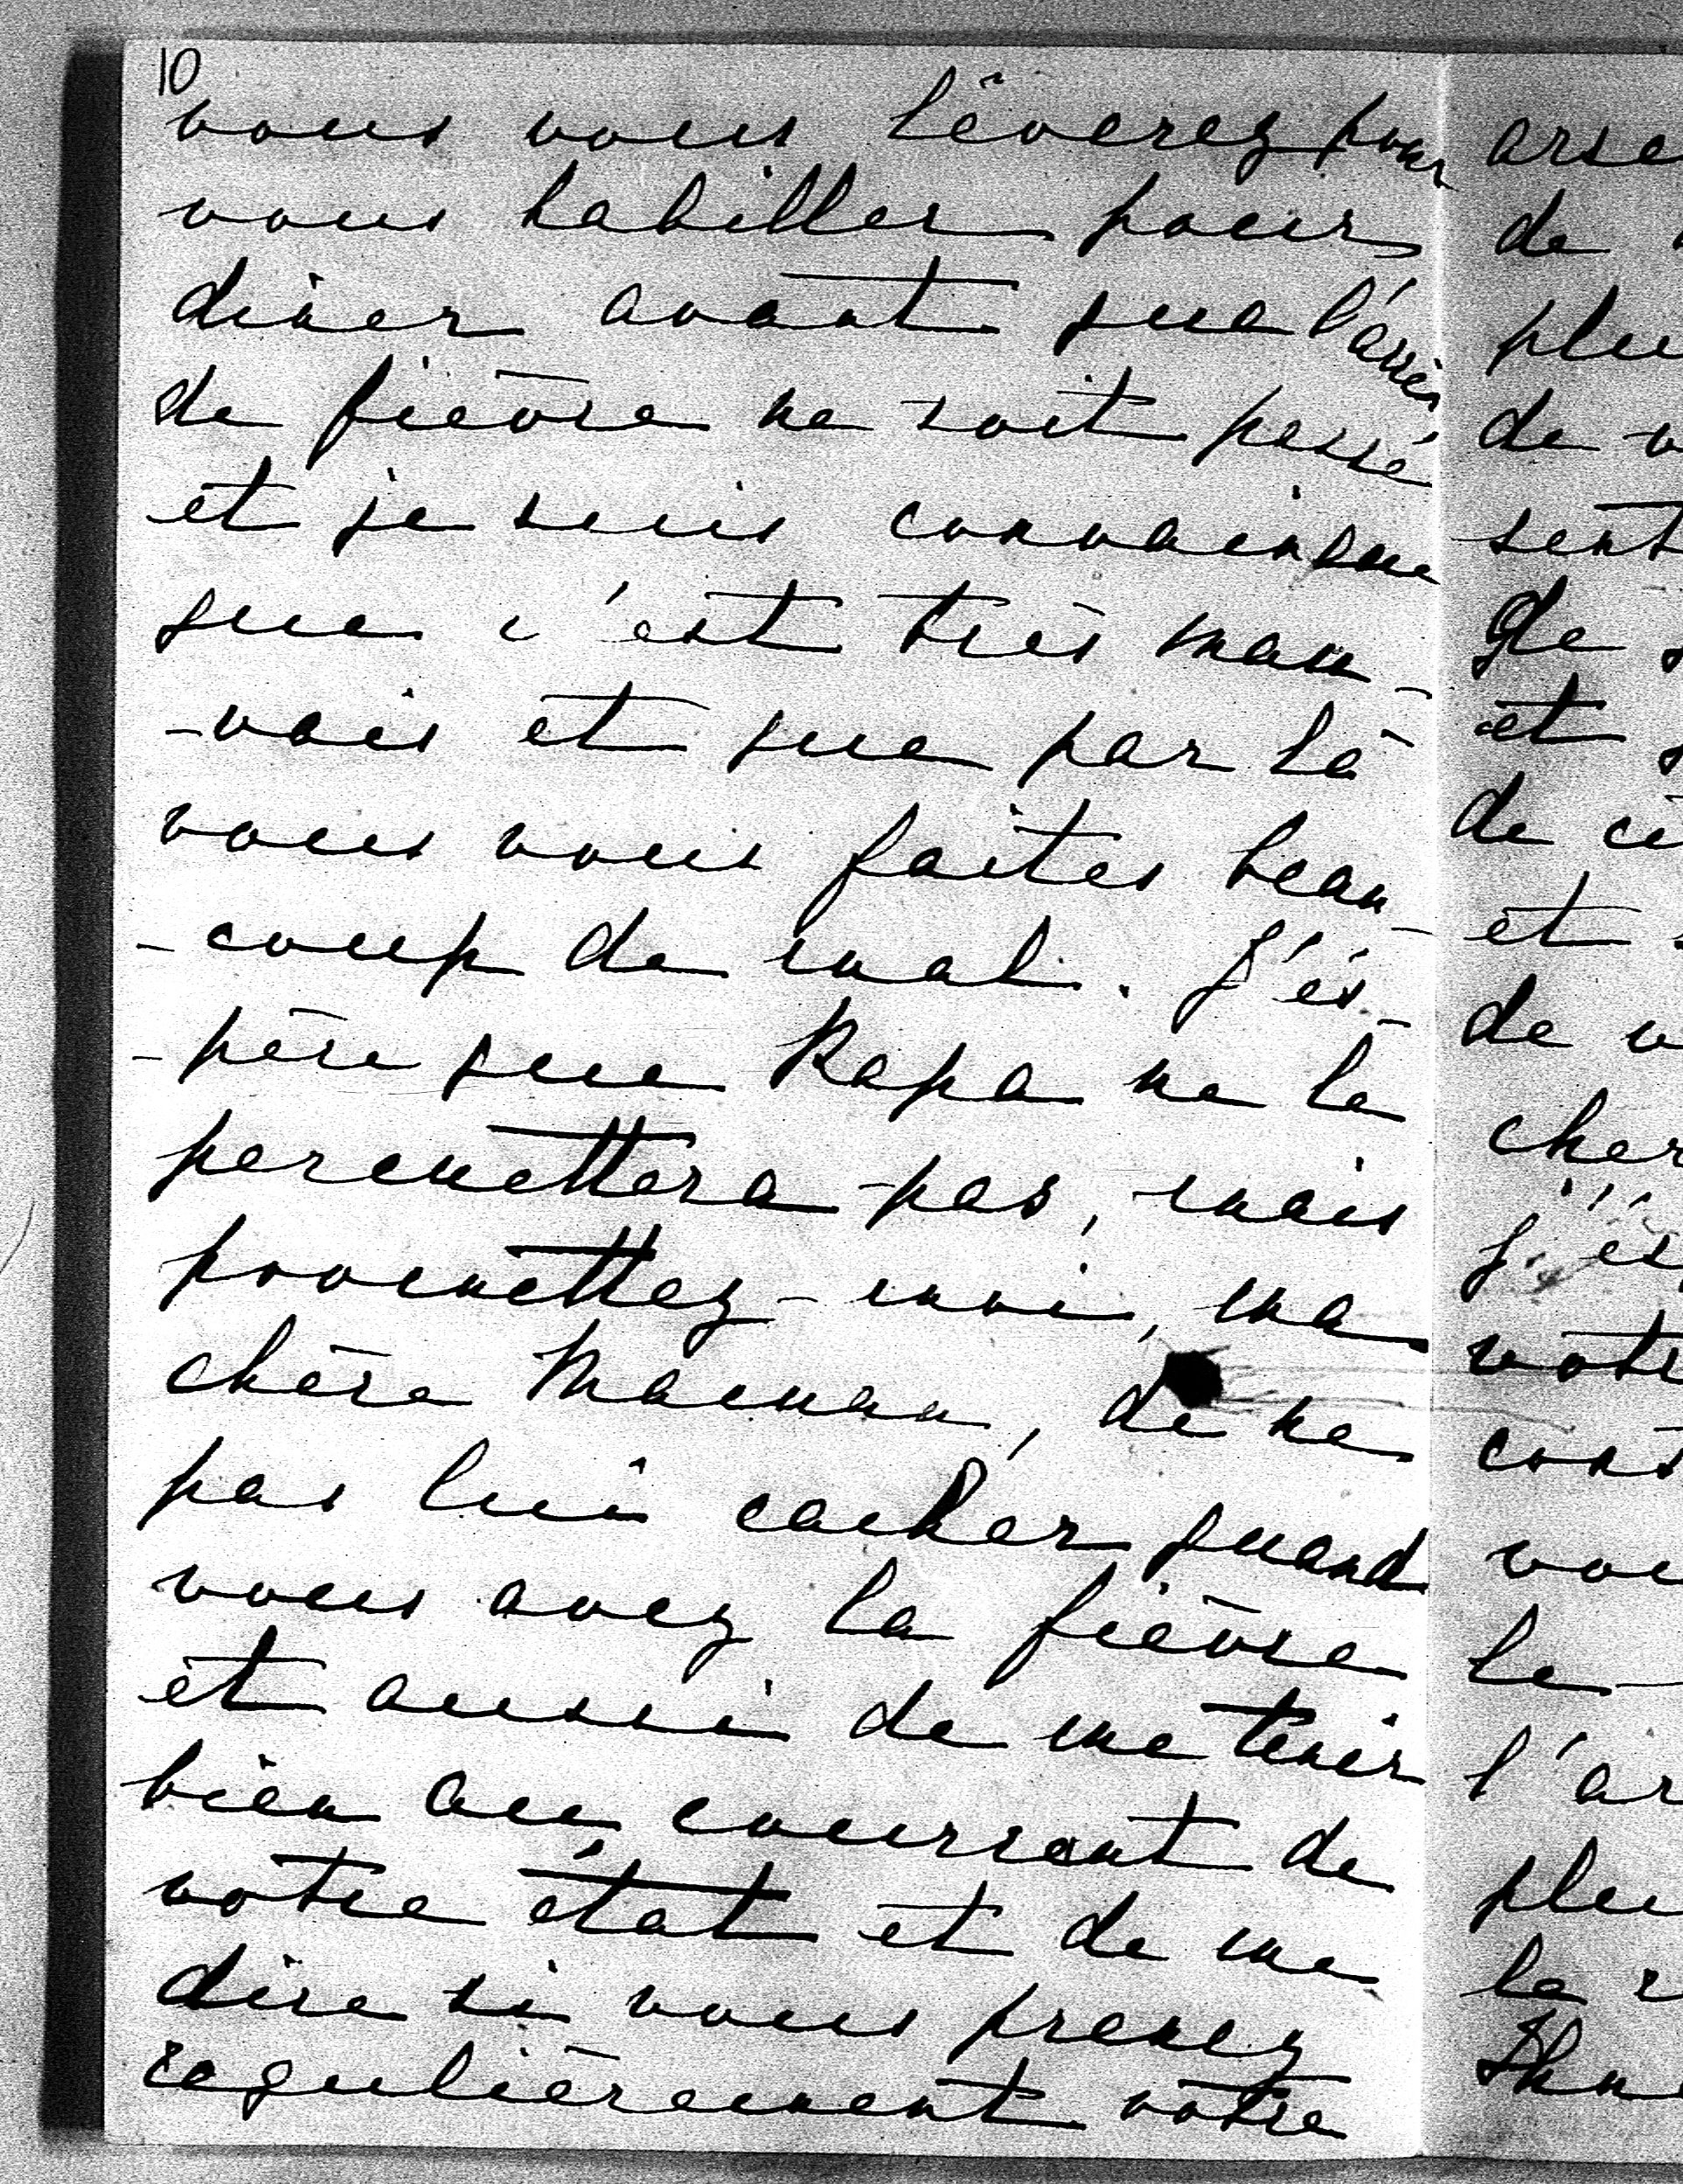 10
vous vous lèverez pour
vous habiller pour
diner avant que l'accès
de fièvre ne soit passé
et je suis convaincue
que c'est très mau-
-vais et que par là
vous vous faites beau-
-coup de mal. J'es-
-père que Papa ne le
permettera pas, mais
promettez-moi, ma
chère Maman, de ne
pas lui cacher quand
vous avez la fièvre
et aussi de me tenir
bien au courrant de
votre état et de me
dire si vous prenez
regulièrement votre
arse
de
plu
de v
sent
de
et
de ce
et
de v
cher
j'es
votr
cons
vou
le
l'ar
plu
la r